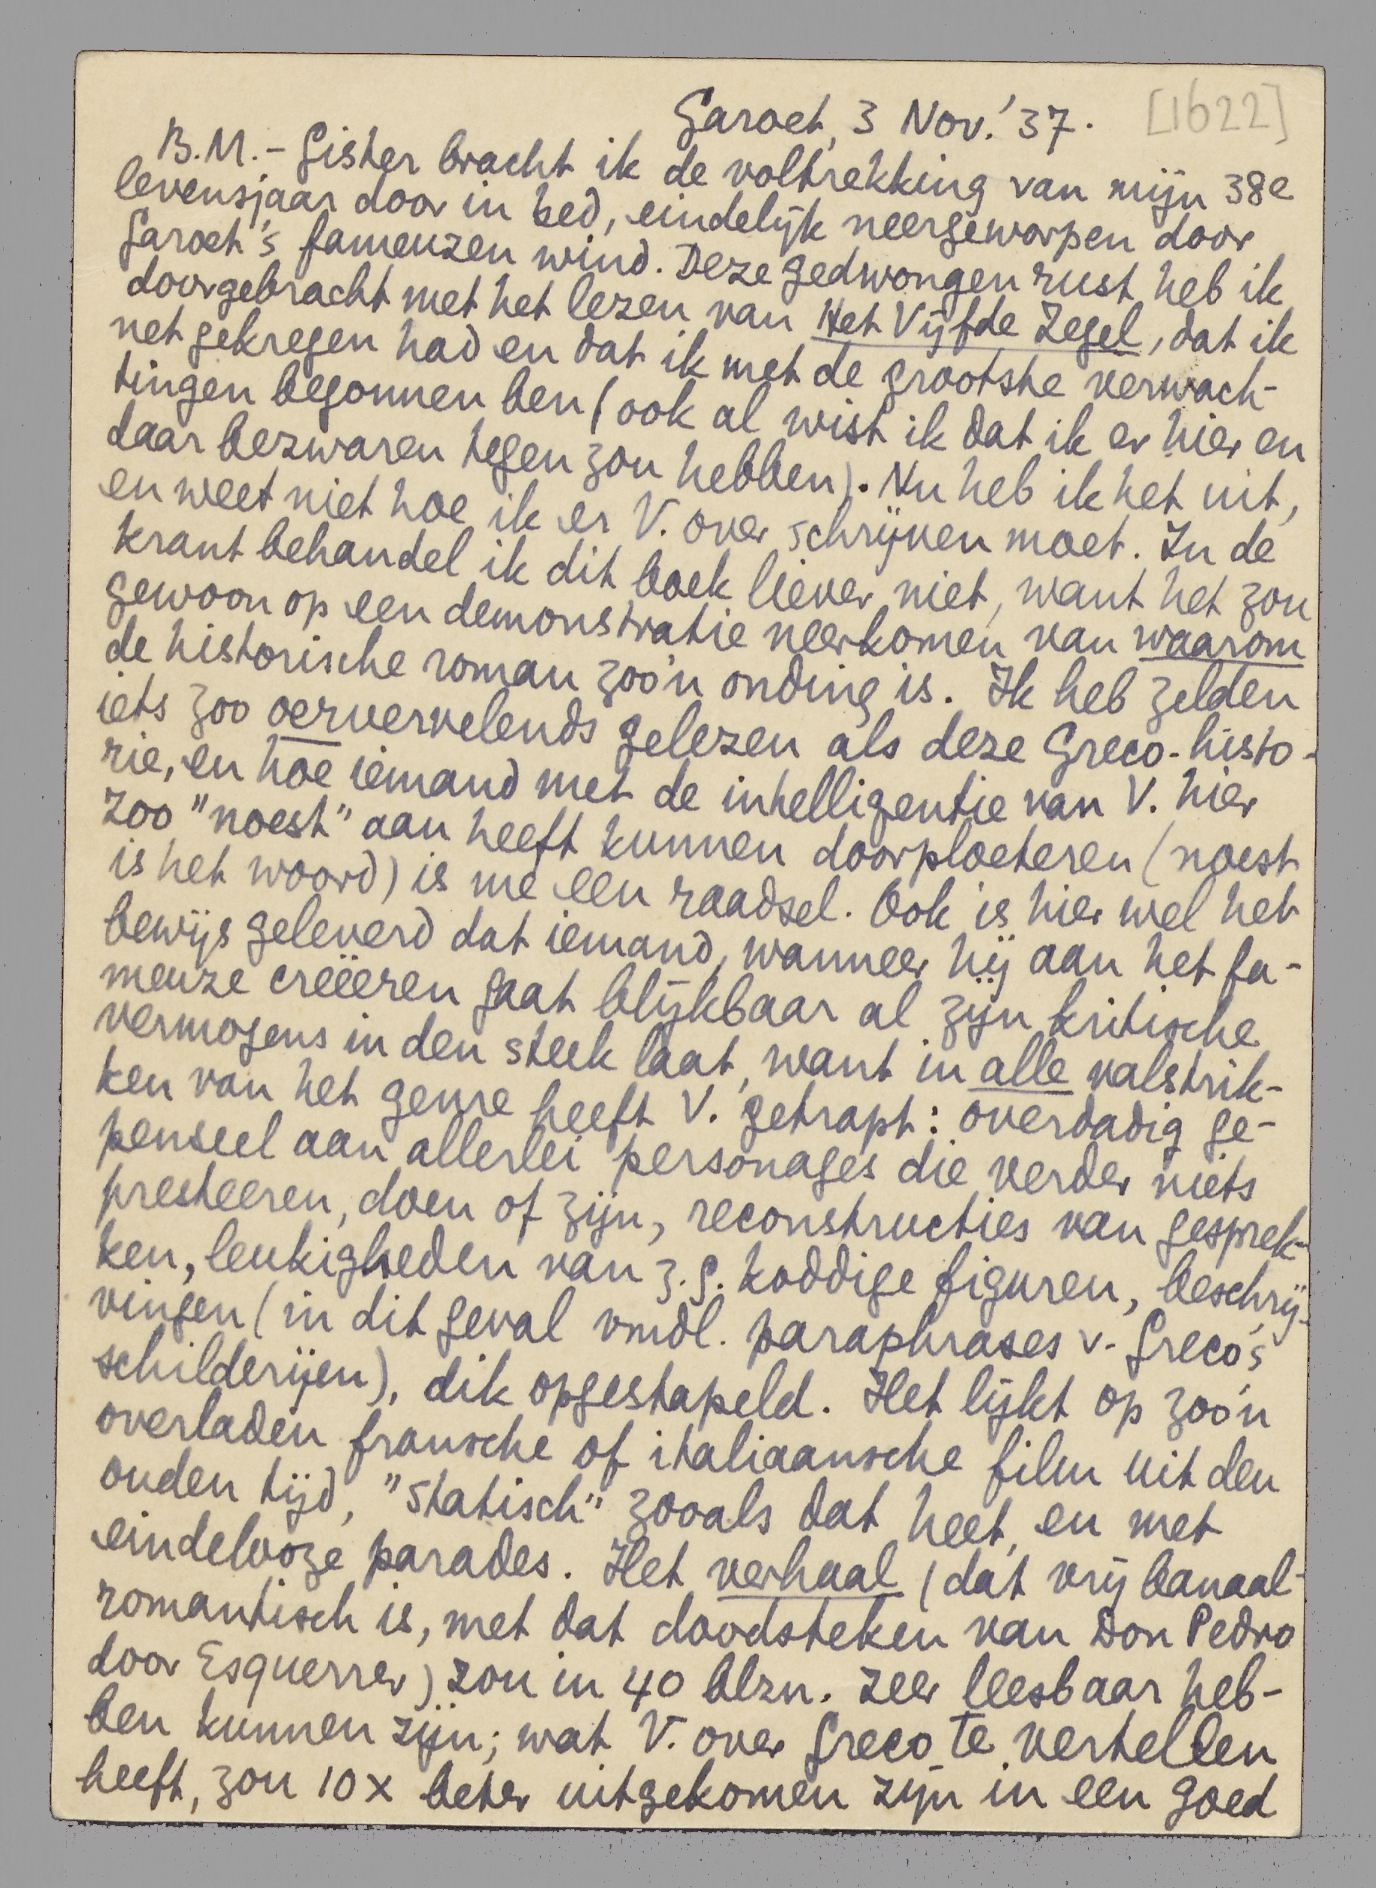 Garoet, 3 Nov. '37. [1622]
B.M. – Gister bracht ik de voltrekking van mijn 38e
levensjaar door in bed, eindelijk neergeworpen door
Garoet's fameuzen wind. Deze gedwongen rust heb ik
doorgebracht met het lezen van Het Vijfde Zegel, dat ik
net gekregen had en dat ik met de grootste verwach-
tingen begonnen ben (ook al wist ik dat ik er hier en
daar bezwaren tegen zou hebben). Nu heb ik het uit,
en weet niet hoe ik er V. over schrijven moet. In de
krant behandel ik dit boek liever niet, want het zou
gewoon op een demonstratie neerkomen van waarom
de historische roman zoo'n onding is. Ik heb zelden
iets zoo oervervelends gelezen als deze Greco-histo-
rie, en hoe iemand met de intelligentie van V. hier
zoo "noest" aan heeft kunnen doorploeteren (noest
is het woord) is me een raadsel. Ook is hier wel het
bewijs geleverd dat iemand, wanneer hij aan het fa-
meuze creëeren gaat blijkbaar al zijn kritische
vermogens in den steek laat, want in alle valstrik-
ken van het genre heeft V. getrapt: overdadig ge-
penseel aan allerlei personages die verder niets
presteeren, doen of zijn, reconstructies van gesprek-
ken, leukigheden van z.g. koddige figuren, beschrij-
vingen (in dit geval vmdl. paraphrases v. Greco's
schilderijen), dik opgestapeld. Het lijkt op zoo'n
overladen fransche of italiaansche film uit den
ouden tijd, "statisch" zooals dat heet, en met
eindelooze parades. Het verhaal (dat vrij banaal-
romantisch is, met dat doodsteken van Don Pedro
door Esquerrer) zou in 40 blzn. zeer leesbaar heb-
ben kunnen zijn; wat V. over Greco te vertellen
heeft, zou 10 x beter uitgekomen zijn in een goed